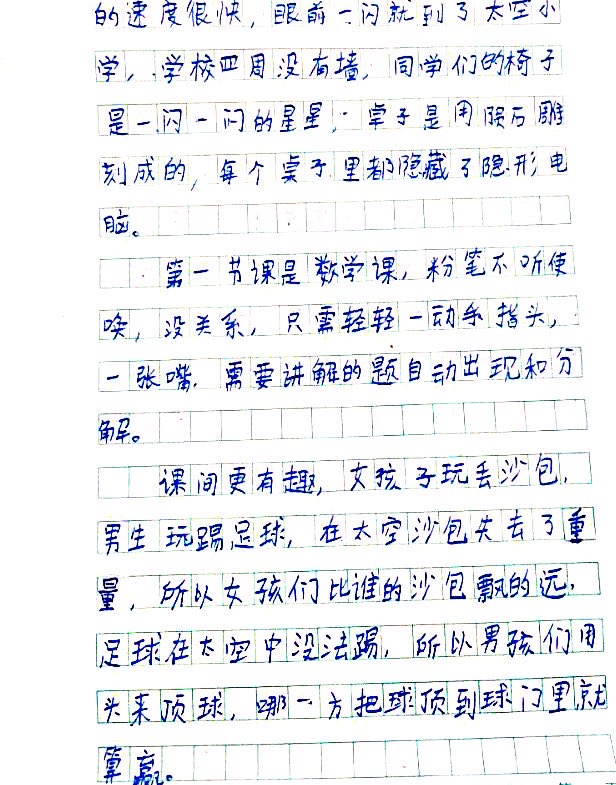 的速度很快，眼前一闪就到了太空小
学，学校四周没有墙，同学们的椅子
是一闪一闪的星星，桌子是用陨石雕
刻成的，每个桌子里都隐藏了隐形电
脑。
第一节课是数学课，粉笔不听使
唤，没关系，只需轻轻一动手指头，
一张嘴，需要讲解的题自动出现和分
解。
课间更有趣，女孩子玩丢沙包，
男生玩踢足球，在太空沙包失去了重
量，所以女孩们比谁的沙包飘的远，
足球在太空中没法踢，所以男孩们用
头来顶球，哪一方把球顶到球门里就
算赢。